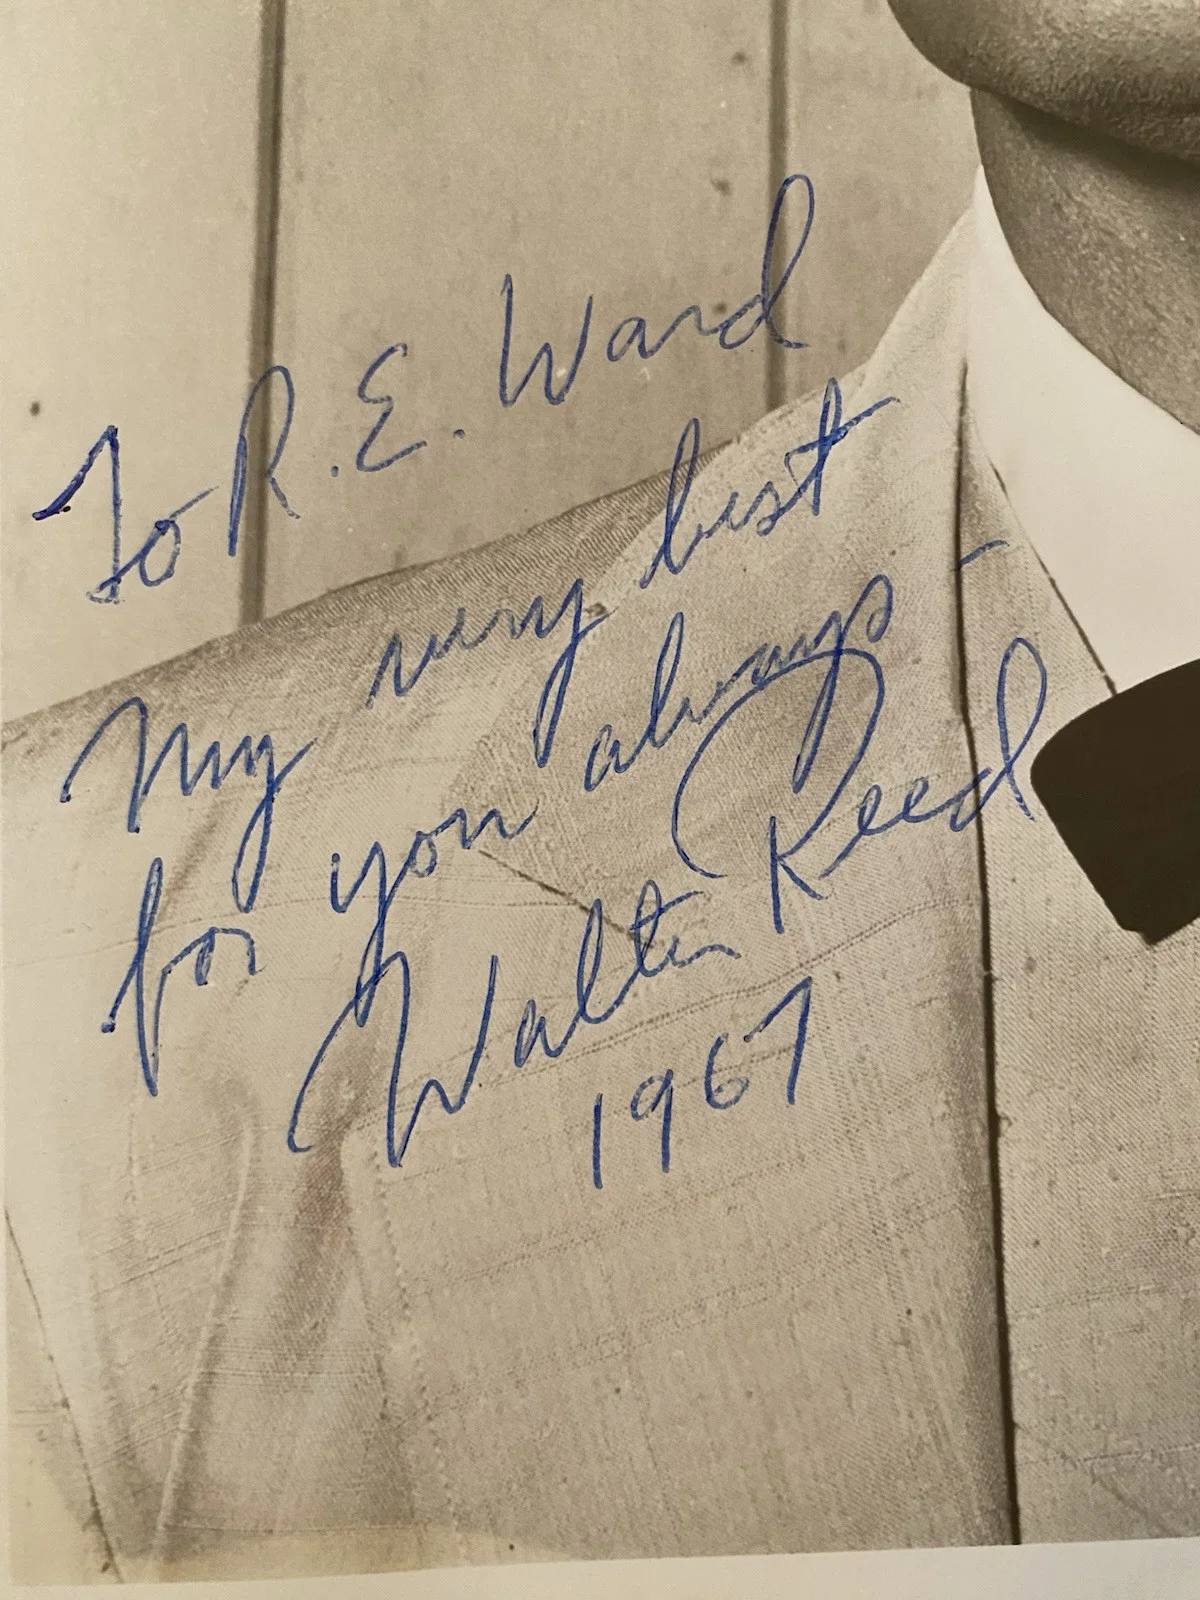 To R.E. Ward
My very best
for you always -
Walter Reed
1967